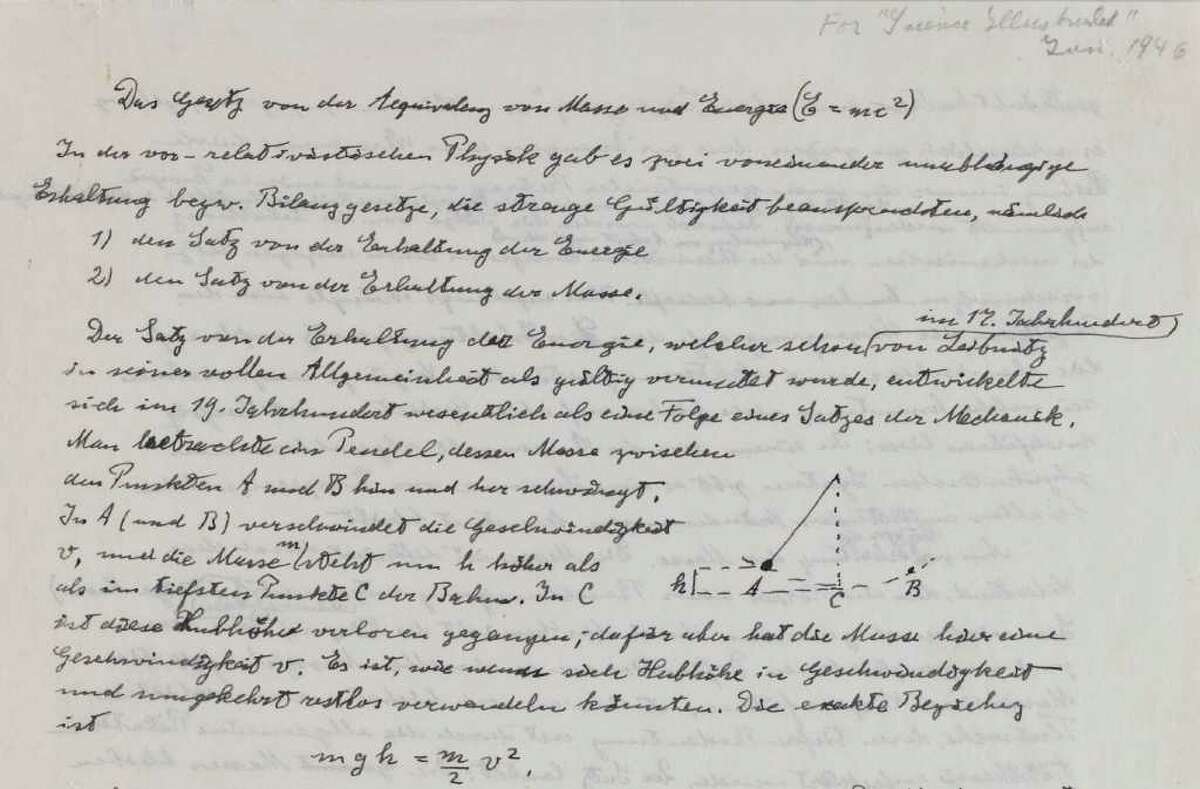 For "Science Illustrated"
Jan. 1946
Das Gesetz von der Aequivalenz von Masse und Energie (E = mc²)
In der vor-relativistischen Physik gab es zwei voneinander unabhängige
Erhaltung bezw. Bilanzgesetze, die strenge Gültigkeit beanspruchten, nämlich
1) den Satz von der Erhaltung der Energie
2) den Satz von der Erhaltung der Masse.
im 17. Jahrhundert
Der Satz von der Erhaltung der Energie, welcher schon von Leibnitz
in seiner vollen Allgemeinheit als gültig vermutet wurde, entwickelte
sich im 19. Jahrhundert wesentlich als eine Folge eines Satzes der Mechanik.
Man betrachte ein Pendel, dessen Masse zwischen
den Punkten A und B hin und her schwingt.
In A (und B) verschwindet die Geschwindigkeit
v, und die Masse m steht um h höher als
als im tiefsten Punkte C der Bahn. In C
ist diese Hubhöhe verloren gegangen; dafür aber hat die Masse hier eine
Geschwindigkeit v. Es ist, wie wenn sich Hubhöhe in Geschwindigkeit
und umgekehrt restlos verwandeln könnten. Die exakte Beziehung
ist
mgh = m/2 v²,
h A C B